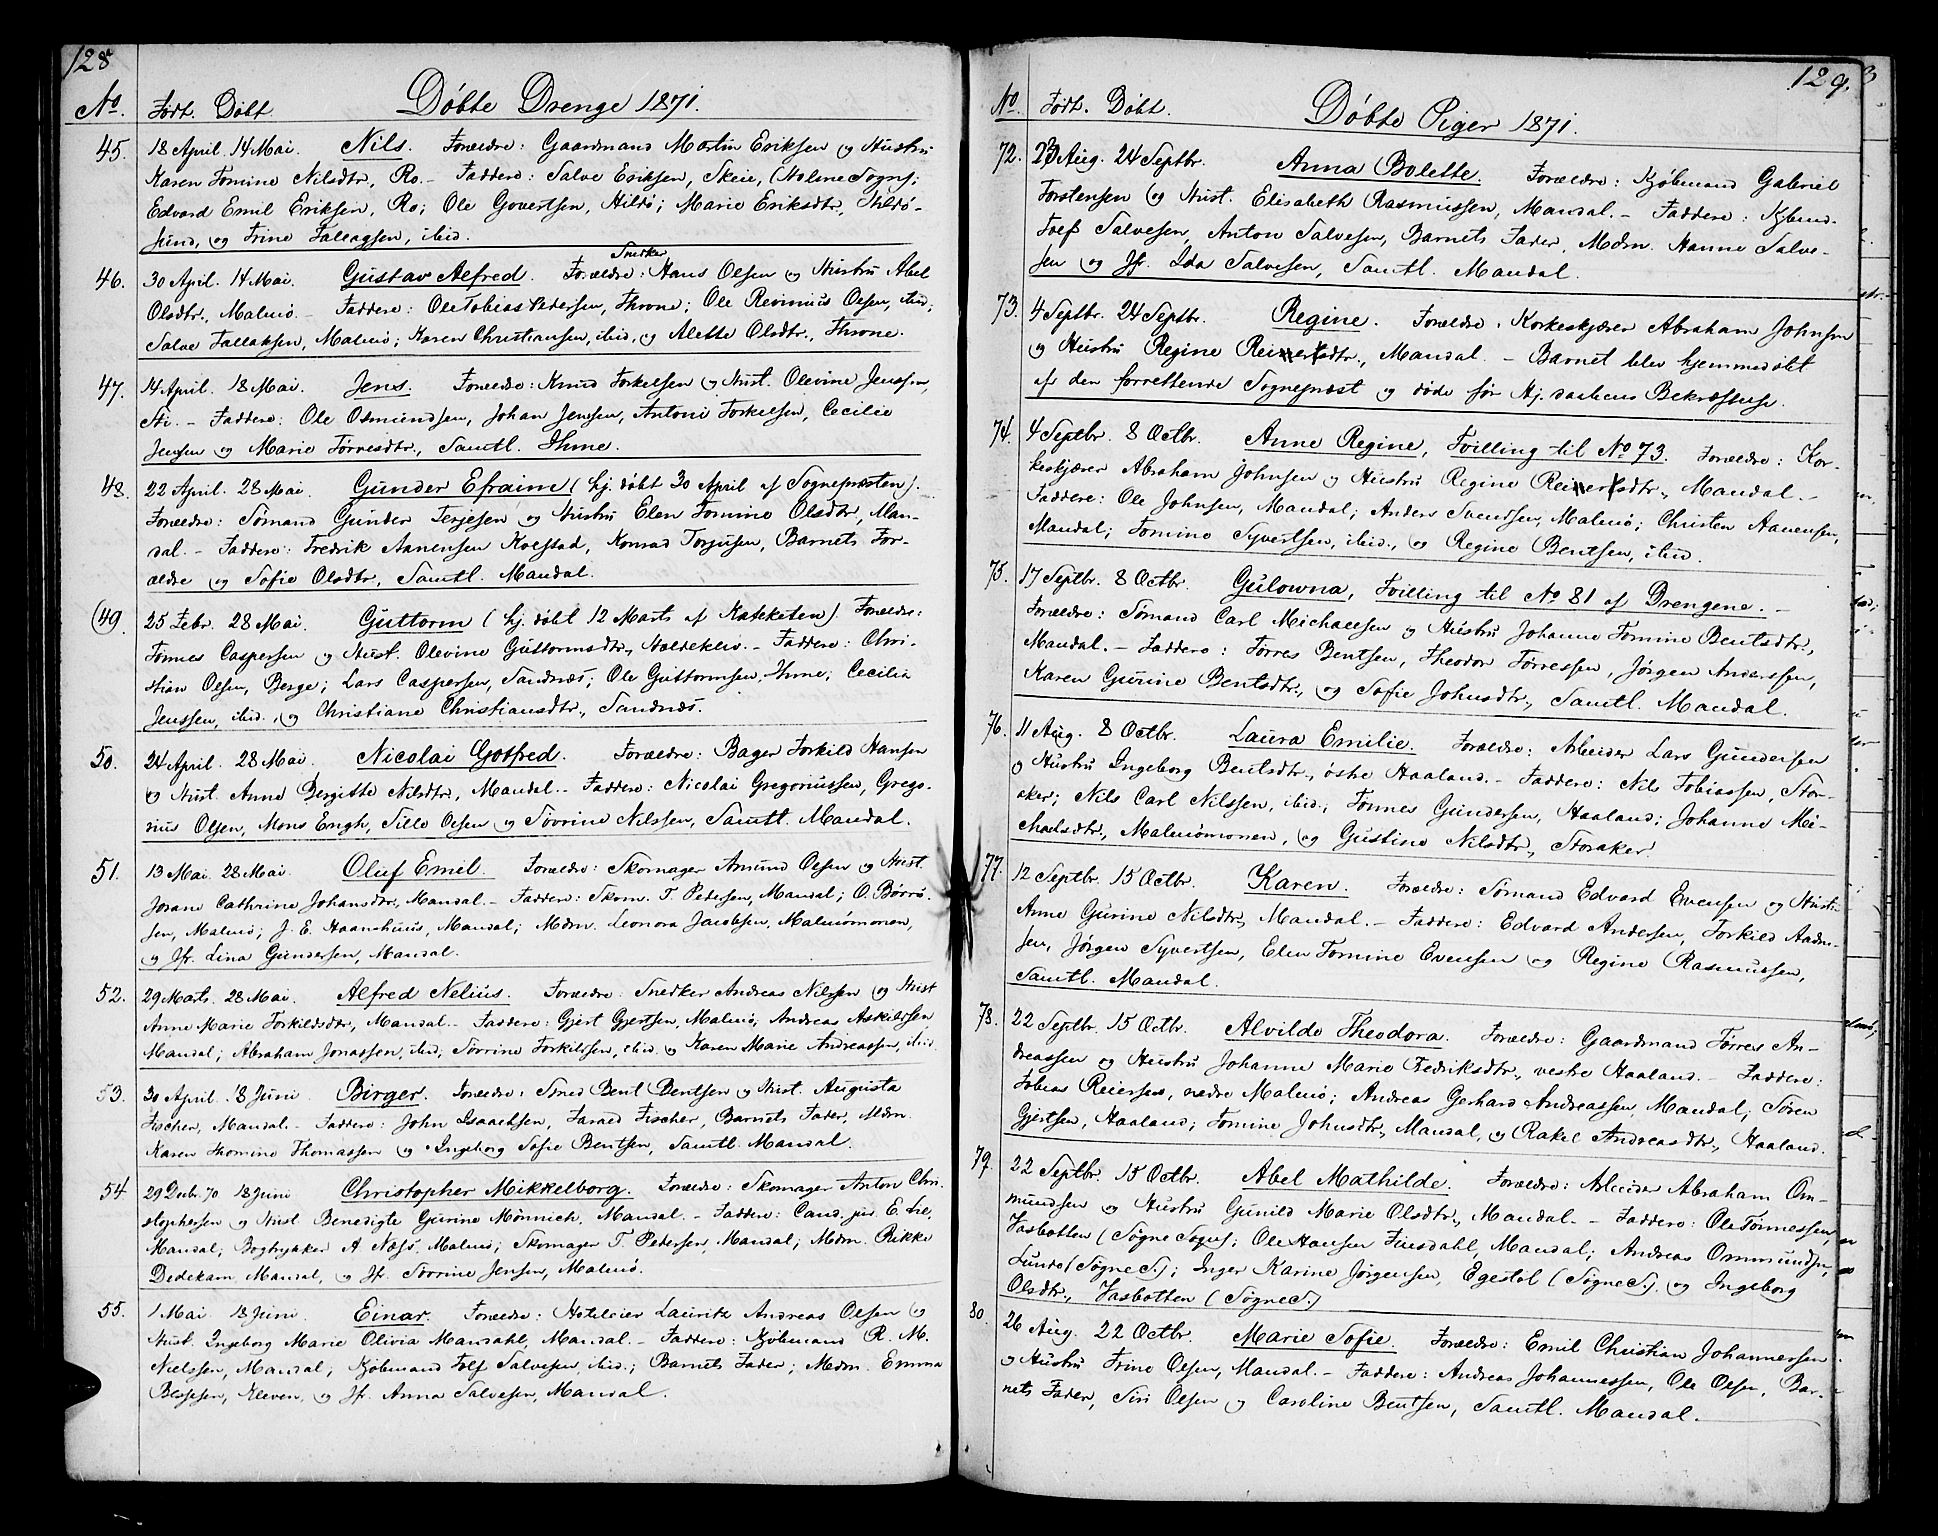 128
No. Født. Døbt. Døbte Drenge 1871.
45. 18 April. 14 Mai. Nils. Forældre: Gaardmand Martin Eriksen og Hustru
Karen Tomine Nilsdtr., Ro. – Faddere: Salve Eriksen, Skeie, (Holme Sogn;
Edvard Emil Eriksen, Ro; Ole Govertsen, Hildø; Marie Eriksdtr.,
sund, og Trine Tallagsen, ibid.
Snedker
46. 30 April. 14 Mai. Gustav Alfred. Forældre: Hans Olsen og Hustru Abel
Olsdtr., Malmø. – Faddere: Ole Tobias Pedersen, Throne; Ole Olsen, ibid;
Salve Tallaksen, Malmø; Karen Christiansen, ibid, og Alette Olsdtr., Throne.
47. 14 April. 18 Mai. Jens. Forældre: Knud Torkelsen og Hust. Olevine Jenssen,
– Faddere: Ole Osmundsen, Johan Jenssen, Antoni Torkelsen, Cecilie
Jenssen og Marie Tørresdtr., Samtl. Ihme.
48. 22 April. 28 Mai. Gunder Efraim (hj. døbt 30 April af Sognepræsten).
Forældre: Sømand Gunder Terjesen og Hustru Elen Tomine Olsdtr., Man-
dal. – Faddere: Fredrik Aanensen Kolstad, Konrad Torjusen, Barnets For-
ældre og Sofie Olsdtr., Samtl. Mandal.
49. 25 Febr. 28 Mai. Guttorm (hj. døbt 12 Marts af Kateketen). Forældre:
Tønnes Caspersen og Hust. Olevine Guttormsdtr., Holteklev. – Faddere: Chri-
stian Olsen, Berge; Lars Caspersen, Sandnæs; Ole Guttormsen, Ihme; Cecilia
Jenssen, ibid., og Christiane Christiansdtr., Sandnæs.
50. 24 April. 28 Mai. Nicolai Gotfred. Forældre: Bager Torkild Hansen
og Hust. Anne Bergitte Nilsdtr., Mandal. – Faddere: Nicolai Gregoriussen, Grego-
rius Olsen, Mons Engh, Sille Olsen og Sørrine Nilssen, Samtl. Mandal.
51. 13 Mai. 28 Mai. Oluf Emil. Forældre: Skomager Amund Olsen og Hust.
Josane Cathrine Johansdtr., Mandal. – Faddere: Skom. T. Pedersen, Mandal; O. Børre-
sen, Malmø; J. E. Haanshuus, Mandal; Mdm. Leonora Jacobsen, Malmømonen,
og Jfr. Lina Gundersen, Mandal.
52. 29 Marts. 28 Mai. Alfred Nelius. Forældre: Snedker Andreas Nilssen og Hust
Anne Marie Torkildsdtr., Mandal. – Faddere: Gjert Gjertsen, Malmø; Andreas Askildsen
Mandal; Abraham Jonassen, ibid, Sørrine Torkildsen, ibid. og Karen Marie Andreassen, ibid.
53. 30 April. 18 Juni. Birger. Forældre: Smed Bent Bentsen og Hust. Augusta
Fischer, Mandal. – Faddere: John Isaachsen, Jared Fischer, Barnets Fader, Mdm.
Karen Thomine Thomassen og Ingeborg Sofie Bentsen, Samtl. Mandal.
54. 29 Decbr. 70 18 Juni Christopher Mikkelborg. Forældre: Skomager Anton Chri-
stophersen og Hust. Benedigte Gurine Mönnich, Mandal. – Faddere: Cand. jur. E. Lie,
Mandal; Bogtrykker A Næss, Malmø; Skomager T. Pedersen, Mandal; Mdm. Rikke
Dedekam, Mandal, og Jf. Sørrine Jensen, Malmø.
55. 1 Mai 18 Juni Einar. Forældre: Hotelleier Lauritz Andreas Olsen og
Hust. Ingeborg Marie Olivia Mandahl, Mandal. – Faddere: Kjøbmand R. M.
Nielssen, Mandal; Kjøbmand Tolf Salvesen, ibid.; Barnets Fader; Mdm. Emma
Blessen, Kleven, og Jf. Anna Salvesen, Mandal.
129.
No. Født. Døbt. Døbte Piger 1871.
72. 23 Aug. 24 Septbr. Anna Bolette. Forældre: Kjøbmand Gabriel
Torstensen og Hust. Elisabeth Rasmussen, Mandal. – Faddere: Kjbmd.
Salvesen, Anton Salvesen, Barnets Fader, Mdm. Hanne Salve-
sen og Jfr. Ida Salvesen, Samtl. Mandal.
73. 4 Septbr. 24 Septbr. Regine. Forældre: Korkeskjærer Abraham Johnsen
og Hustru Regine Reiersdtr., Mandal. – Barnet blev hjemmedøbt
af den forrettende Sognepræst og døde før Hj. daabens Bekræftelse.
74. 4 Septbr. 8 Octbr. Anne Regine, Tvilling til No 73. Forældre: Kor-
keskjærer Abraham Johnsen og Hustru Regine Reiersdtr., Mandal. –
Faddere: Ole Johnsen, Mandal; Anders Svendsen, Malmø; Christen Aanensen,
Mandal; Tomine Syvertsen, ibid., og Regine Bentsen, ibid.
75. 17 Septbr. 8 Octbr. Gulowna, Tvilling til No 81 af Drengene. –
Forældre: Sømand Carl Michaelsen og Hustru Johanne Tomine Bentsdtr.,
Mandal. – Faddere: Tørres Bentsen, Theodor Tørressen, Jørgen Anderssen,
Karen Gurine Bentsdtr., og Sofie Johnsdtr., Samtl. Mandal.
76. 11 Aug. 8 Octbr. Laura Emilie. Forældre: Arbeider Lars Gundersen
og Hustru Ingeborg Bentsdtr., østre Haaland. – Faddere: Nils Tobiassen, Stor-
aker; Nils Carl Nilssen, ibid.; Tønnes Gundersen, Haaland; Johanne Mi-
chaelsdtr., Malmømonen, og Gustine Nilsdtr., Storaker.
77. 12 Septbr. 15 Octbr. Karen. Forældre: Sømand Edvard Evensen og Hustru
Anne Gurine Nilsdtr., Mandal. – Faddere: Edvard Andersen, Torkild Aadn-
sen, Jørgen Syvertsen, Elen Tomine Evensen og Regine Rasmussen,
Samtl. Mandal.
78. 22 Septbr. 15 Octbr. Alvilde Theodora. Forældre: Gaardmand Tørres An-
dreassen og Hustru Johanne Marie Fedriksdtr., vestre Haaland. – Faddere:
Tobias Reiersen, nedre Malmø; Andreas Gerhard Andreassen, Mandal; Søren
Gjertsen, Haaland; Tomine Johnsdtr., Mandal, og Rakel Andreasdtr., Haaland.
79. 22 Septbr. 15 Octbr. Abel Mathilde. Forældre: Arbeider Abraham Om-
mundsen og Hustru Gunild Marie Olsdtr., Mandal. – Faddere: Ole Tønnessen,
Vasbotten (Søgne Sogn; Ole Hansen Finsdahl, Mandal; Andreas Ommundsen,
Lunde (Søgne S.); Inger Karine Jørgensen, Egestøl (Søgne S.) og Ingeborg
Olsdtr., Vasbotten (Søgne S.)
80. 26 Aug. 22 Octbr. Marie Sofie. Forældre: Emil Christian Johannessen
og Hustru Trine Olsen, Mandal. – Faddere: Andreas Johannessen, Ole Olsen, Bar-
nets Fader, Siri Olsen og Caroline Bentsen, Samtl. Mandal.